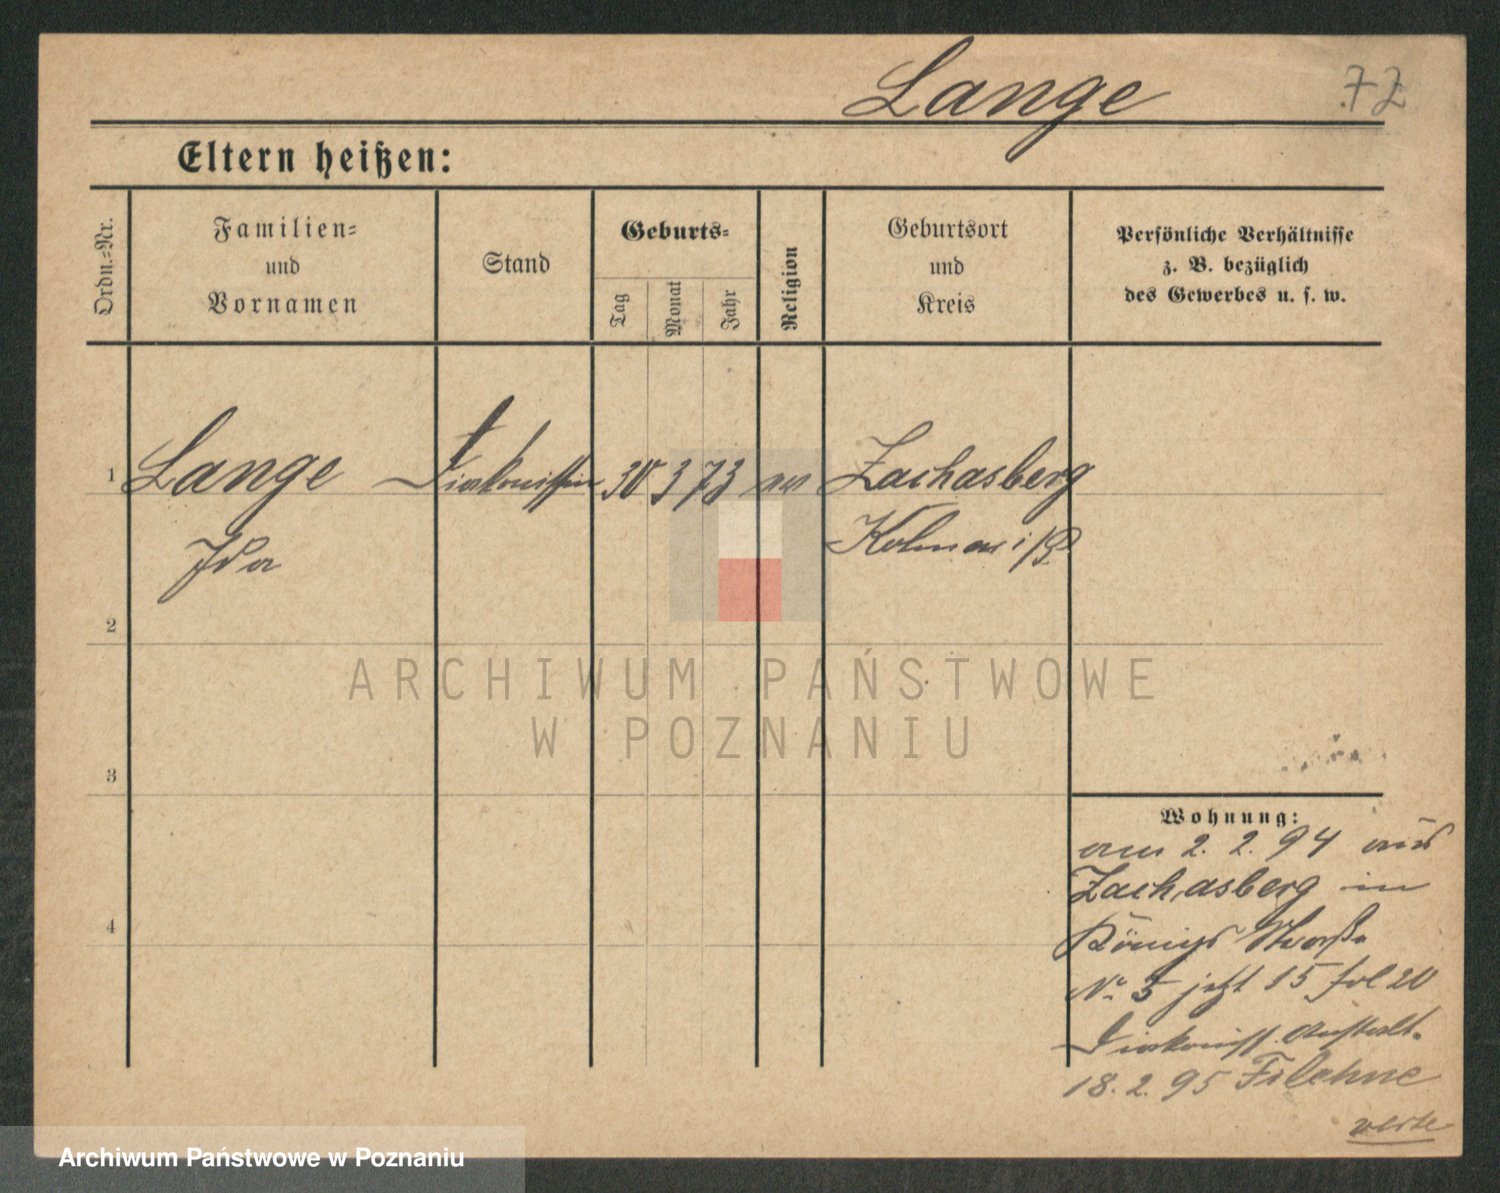 Lange
72
Eltern heißen:
Ordn.-Nr.
Familien-
und
Vornamen
Stand
Geburts-
Tag
Monat
Jahr
Religion
Geburtsort
und
Kreis
Persönliche Verhältnisse
z. B. bezüglich
des Gewerbes u. s. w.
1 Lange Diakonissin 30 3 73 ev Zachasberg
Ida Kolmar i/P.
2
3
4
ARCHIWUM PAŃSTWOWE
W POZNANIU
Wohnung:
am 2. 2. 94 aus
Zachasberg in
Königs
No 5 jetzt 15 fol 20
Diakoniss. Anstalt.
18. 2. 95 Filehne
Archiwum Państwowe w Poznaniu